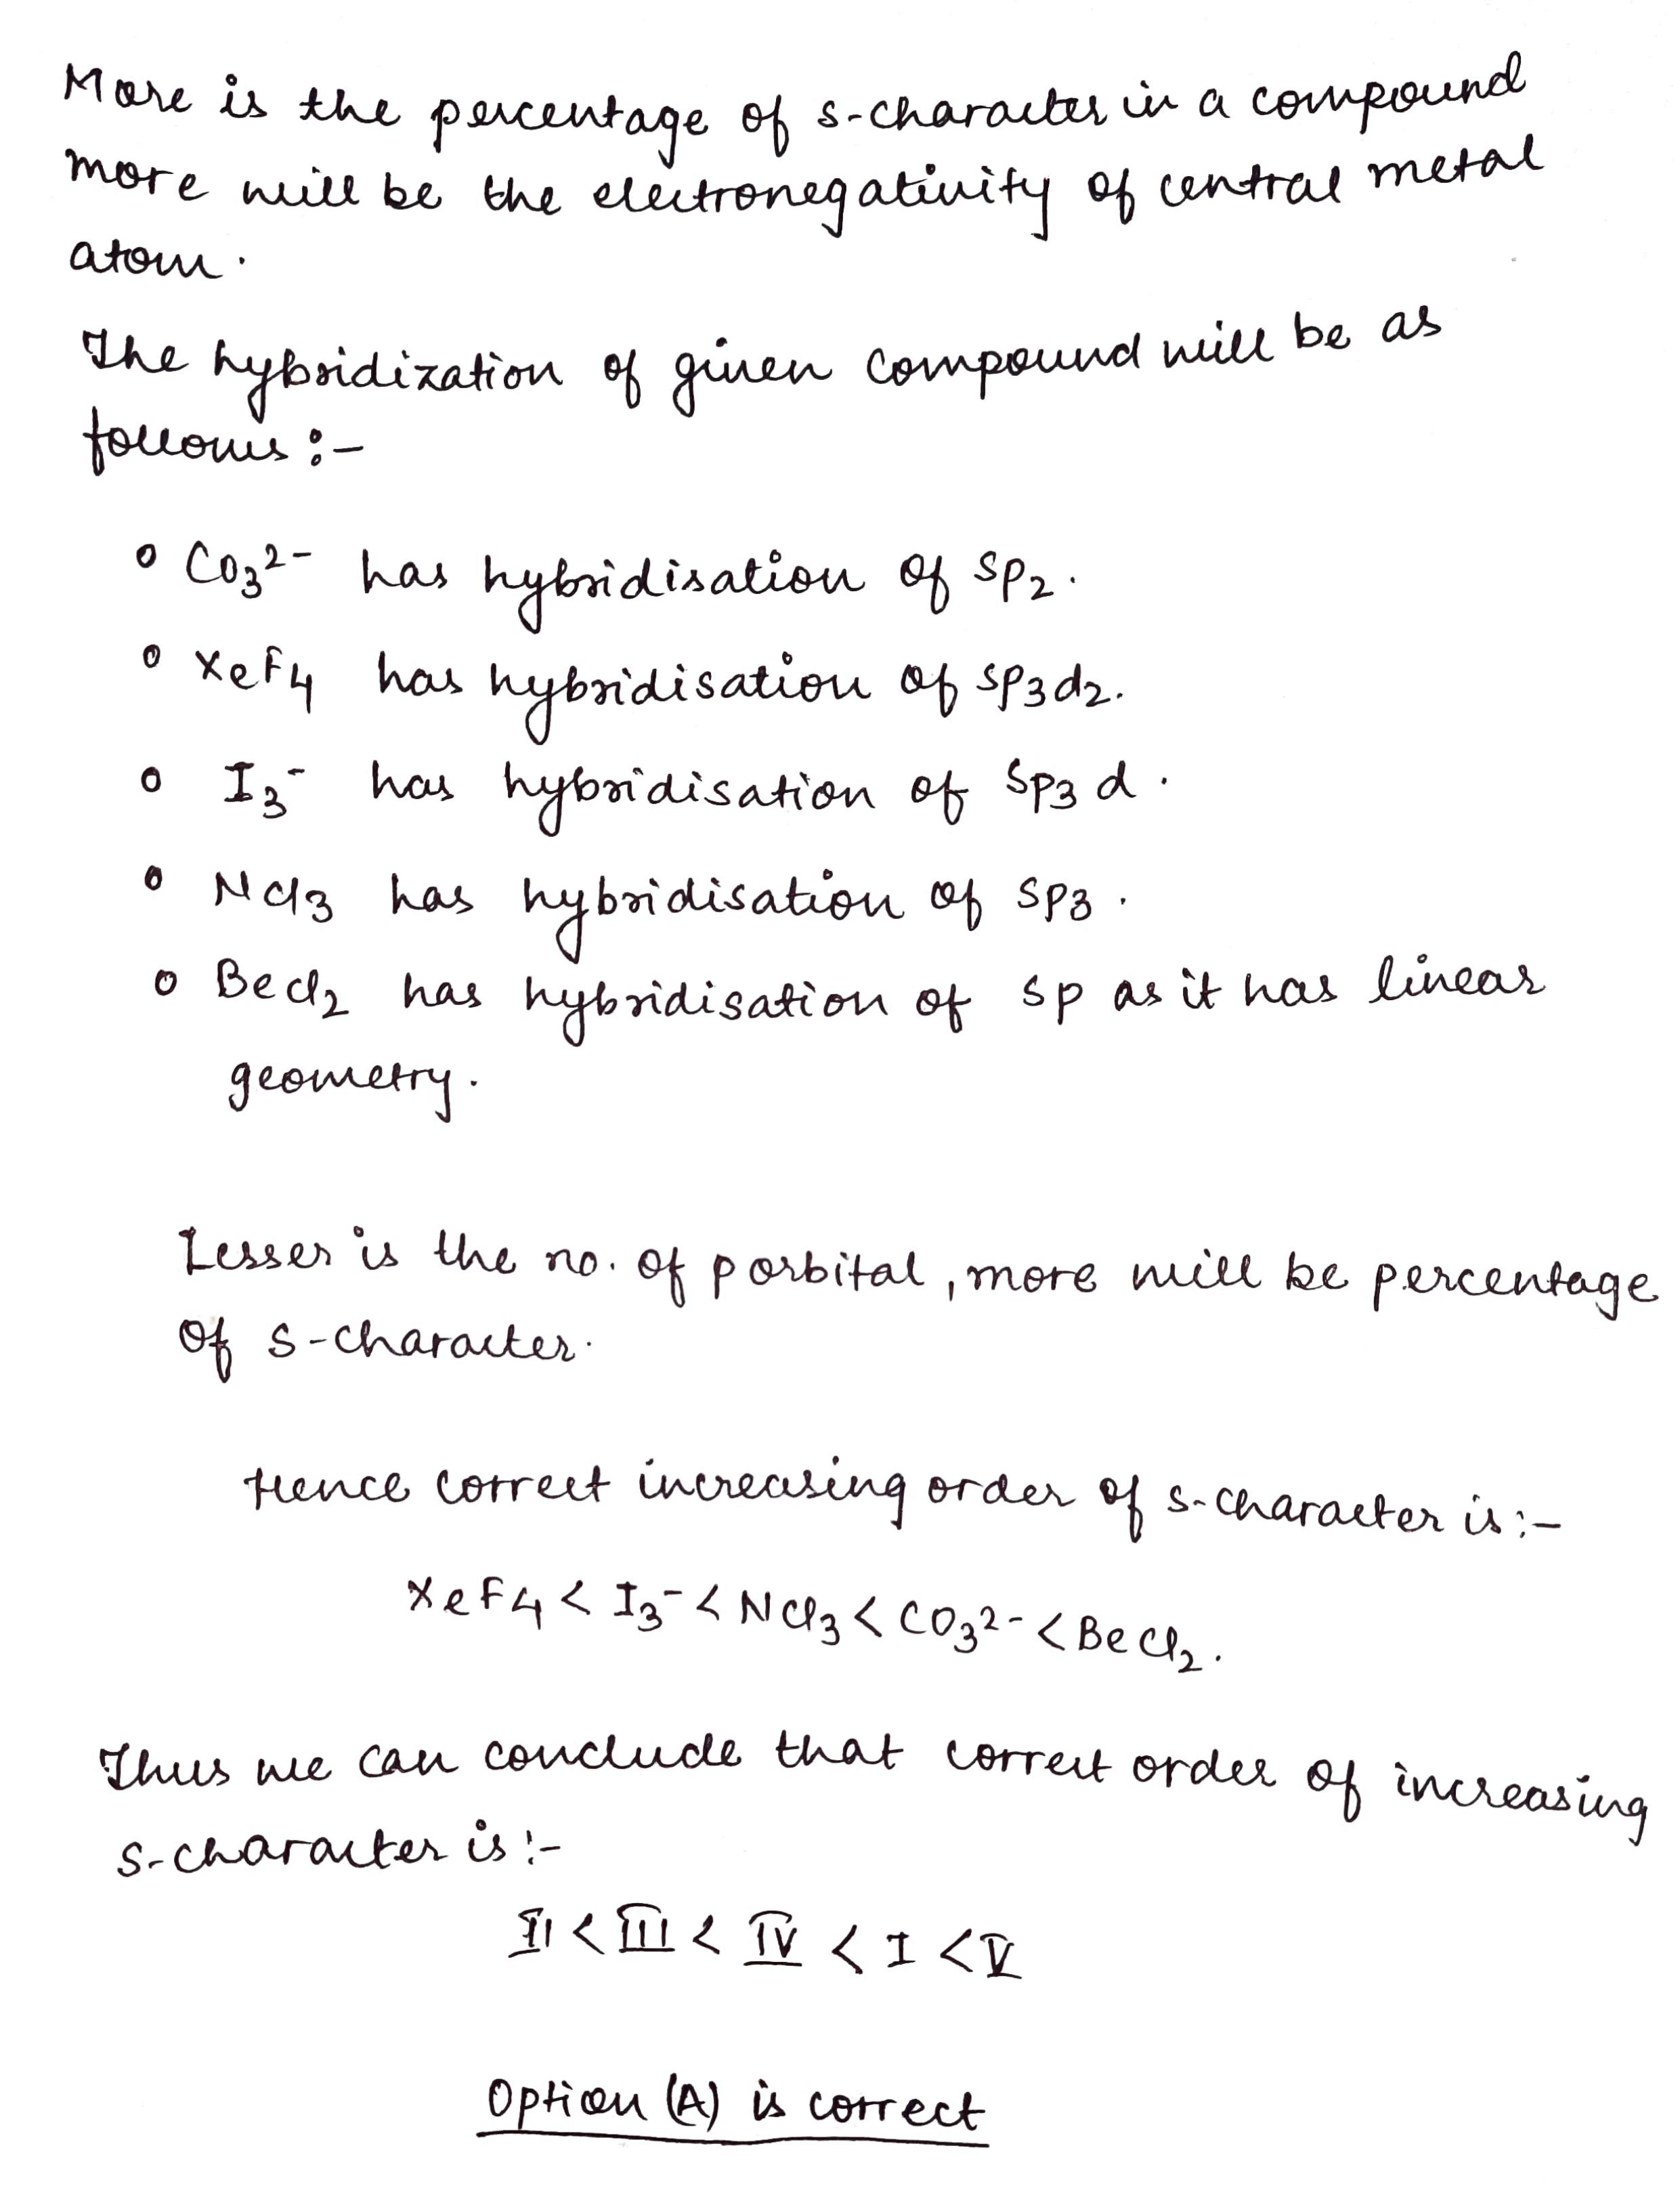 More is the percentage of s-character in a compound
more will be the electronegativity of central metal
atom.
The hybridization of given compound will be as
follows :-
• CO₃²⁻ has hybridisation of sp₂.
• XeF₄ has hybridisation of sp₃d₂.
• I₃⁻ has hybridisation of sp₃d.
• NCl₃ has hybridisation of sp₃.
• BeCl₂ has hybridisation of sp as it has linear
geometry.
Lesser is the no. of p orbital, more will be percentage
of s-character.
Hence correct increasing order of s-character is :-
XeF₄ < I₃⁻ < NCl₃ < CO₃²⁻ < BeCl₂.
Thus we can conclude that correct order of increasing
s-character is :-
II < III < IV < I < V
Option (A) is correct